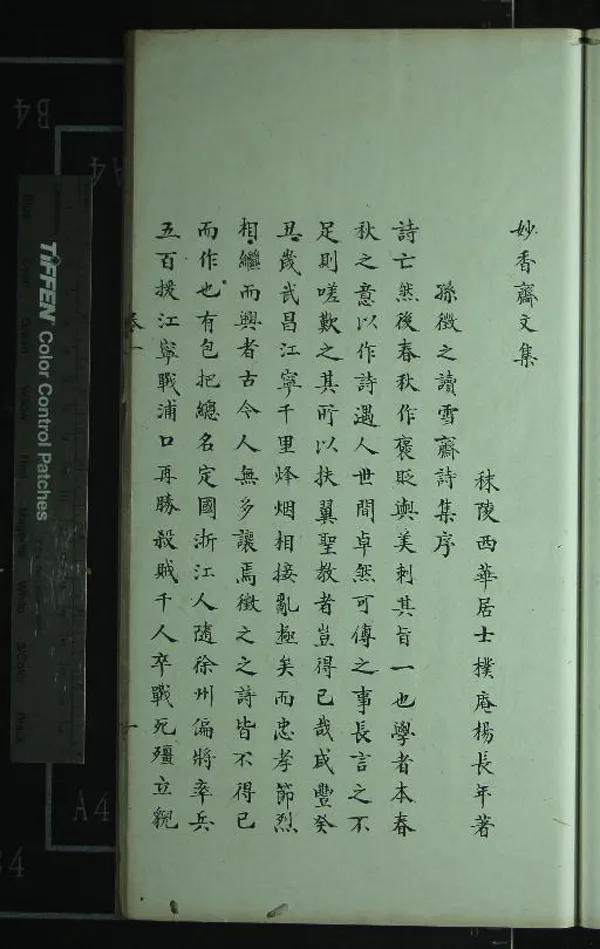 妙香齋文集
秣陵西華居士樸庵楊長年著
孫徵之讀雪齋詩集序
詩亡然後春秋作褒貶與美刺其旨一也學者本春
秋之意以作詩遇人世間卓然可傳之事長言之不
足則嗟歎之其所以扶翼聖教者豈得已哉咸豐癸
丑歲武昌江寧千里烽烟相接亂極矣而忠孝節烈
相繼而興者古今人無多讓焉徵之之詩皆不得已
而作也有包把總名定國浙江人隨徐州偏將率兵
五百援江寧戰浦口再勝殺賊千人卒戰死殭立貌
卷一
一
TIFFEN Color Control Patches
Blue
Green
Red
Magenta
White
3/Color
Black
B4
A4
A4